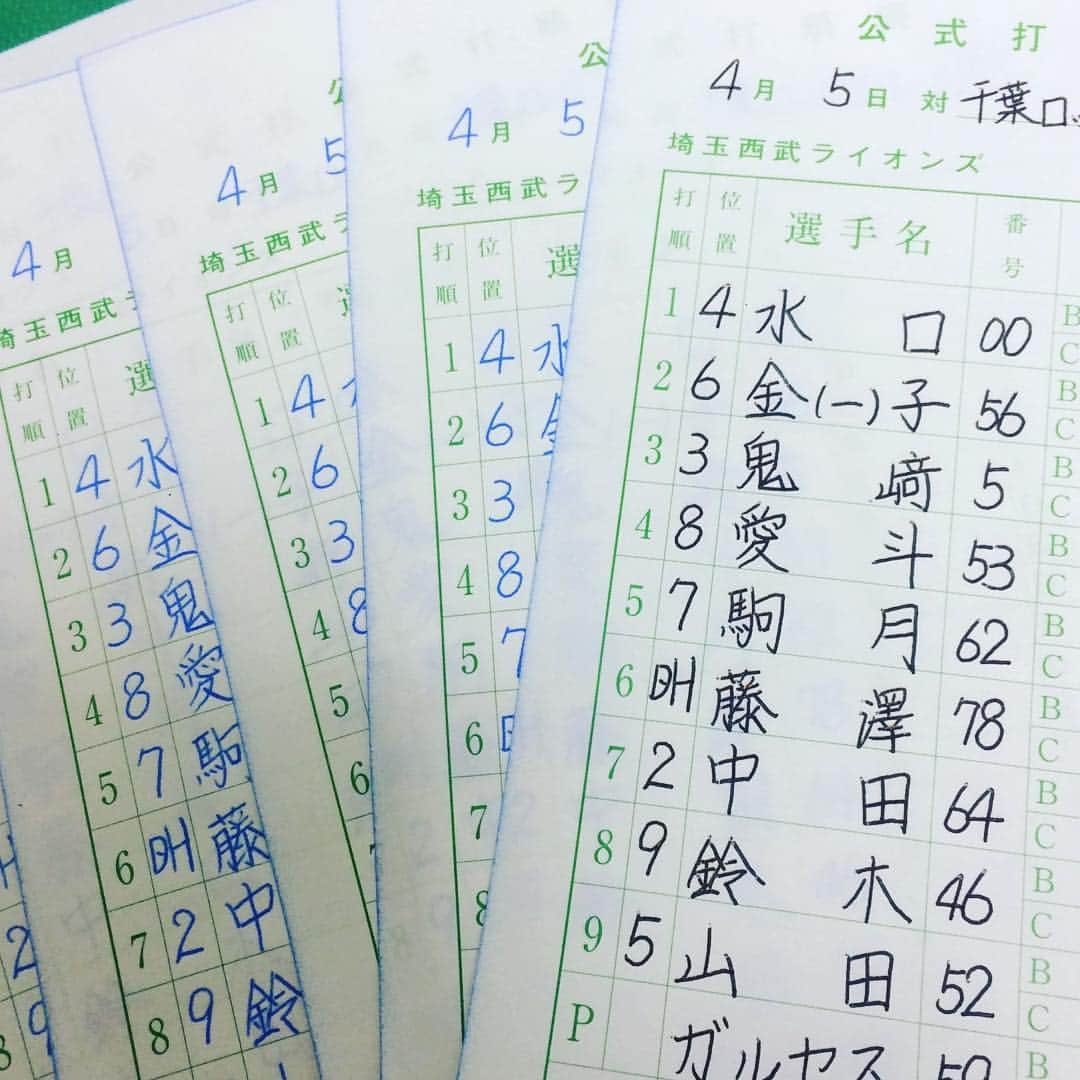 公式打
4月 5日 対 千葉ロッ
埼玉西武ライオンズ
打順 位置 選手名 番号
1 4 水口 00 B C
2 6 金(一)子 56 B C
3 3 鬼﨑 5 B C
4 8 愛斗 53 B C
5 7 駒月 62 B C
6 DH 藤澤 78 B C
7 2 中田 64 B C
8 9 鈴木 46 B C
9 5 山田 52 B C
P ガルセス 59 B
公
4月 5
埼玉西武ラ
打順 位置 選
1 4 水
2 6 金
3 3
4 8
5 7
6
7
8
公
4月 5
埼玉西武ラ
打順 位置
1 4
2 6
3 3
4 8
5
6
4月
埼玉西武ラ
打順 位置 選
1 4 水
2 6 金
3 3 鬼
4 8 愛
5 7 駒
6 DH 藤
7 2 中
8 9 鈴
H
2
9